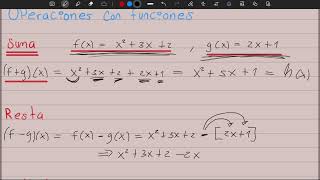 Operaciones con funciones
Suma f(x) = x² + 3x + 2 , g(x) = 2x + 1
(f+g)(x) = x² + 3x + 2 + 2x + 1 = x² + 5x + 1 = h(x)
Resta
(f-g)(x) = f(x) - g(x) = x² + 3x + 2 - [2x + 1]
⇒ x² + 3x + 2 - 2x